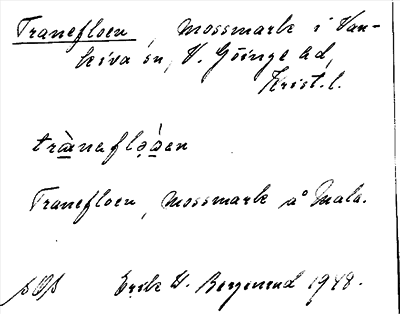 Tranefloen, Mossmark i Van-
keva sn, V. Göinge hd,
Krist. l.
trànaflo̱a̱en
Tranefloen, Mossmark å Mala.
Erik H. Bergstrand 1948.